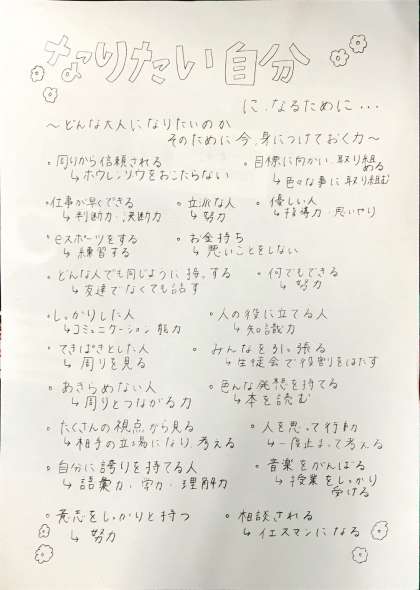 なりたい自分
に、なるために…
～どんな大人になりたいのか
そのために今、身につけておく力～
。周りから信頼される
↳ホウレンソウをおこたらない
。目標に向かい、取り組める
↳色々な事に取り組む
。仕事が早くできる
↳判断力・決断力
。立派な人
↳努力
。優しい人
↳指導力・思いやり
。eスポーツをする
↳練習する
。お金持ち
↳悪いことをしない
。どんな人でも同じように接する
↳友達でなくても話す
。何でもできる
↳努力
。しっかりした人
↳コミュニケーション能力
。人の役に立てる人
↳知識力
。てきぱきとした人
↳周りを見る
。みんなを引っ張る
↳生徒会で役割をはたす
。あきらめない人
↳周りとつながる力
。色んな発想を持てる
↳本を読む
。たくさんの視点から見る
↳相手の立場になり、考える
。人を思って行動
↳一度止まって考える
。自分に誇りを持てる人
↳語彙力・学力・理解力
。音楽をがんばる
↳授業をしっかり
受ける
。意志をしっかりと持つ
↳努力
。相談される
↳イエスマンになる